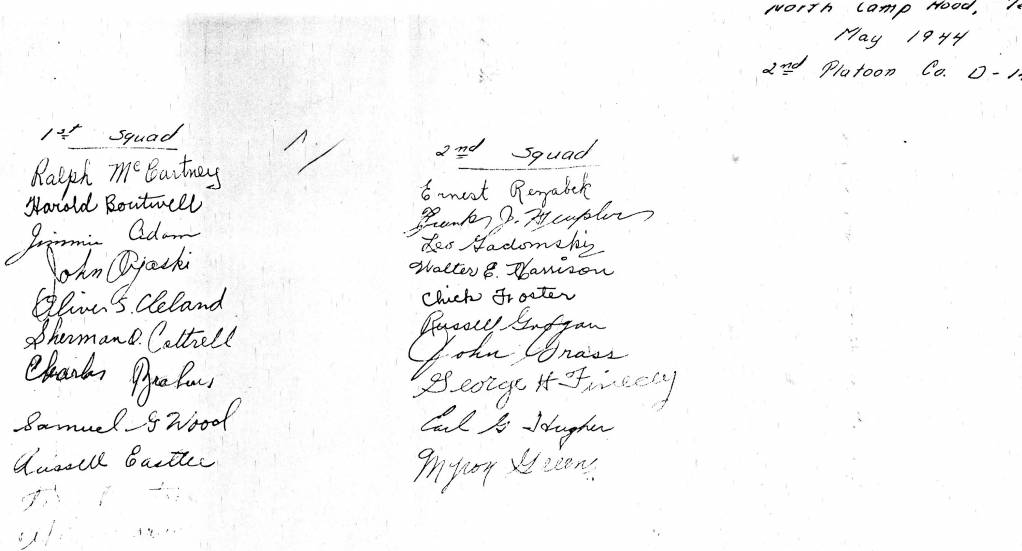 North Camp Hood,
May 1944
2nd Platoon Co. D-
1st Squad
Ralph McCartney
Harold Boutwell
Jimmie Adam
John
Oliver S. Cleland
Sherman D. Cottrell
Charles
Samuel G Wood
Russell Eastlee
2nd Squad
Ernest Rezabek
Frank J.
Leo Gadomski
Walter E. Harrison
Chick Froster
Russell
John Grass
George H
Earl G Hugher
Myron Green